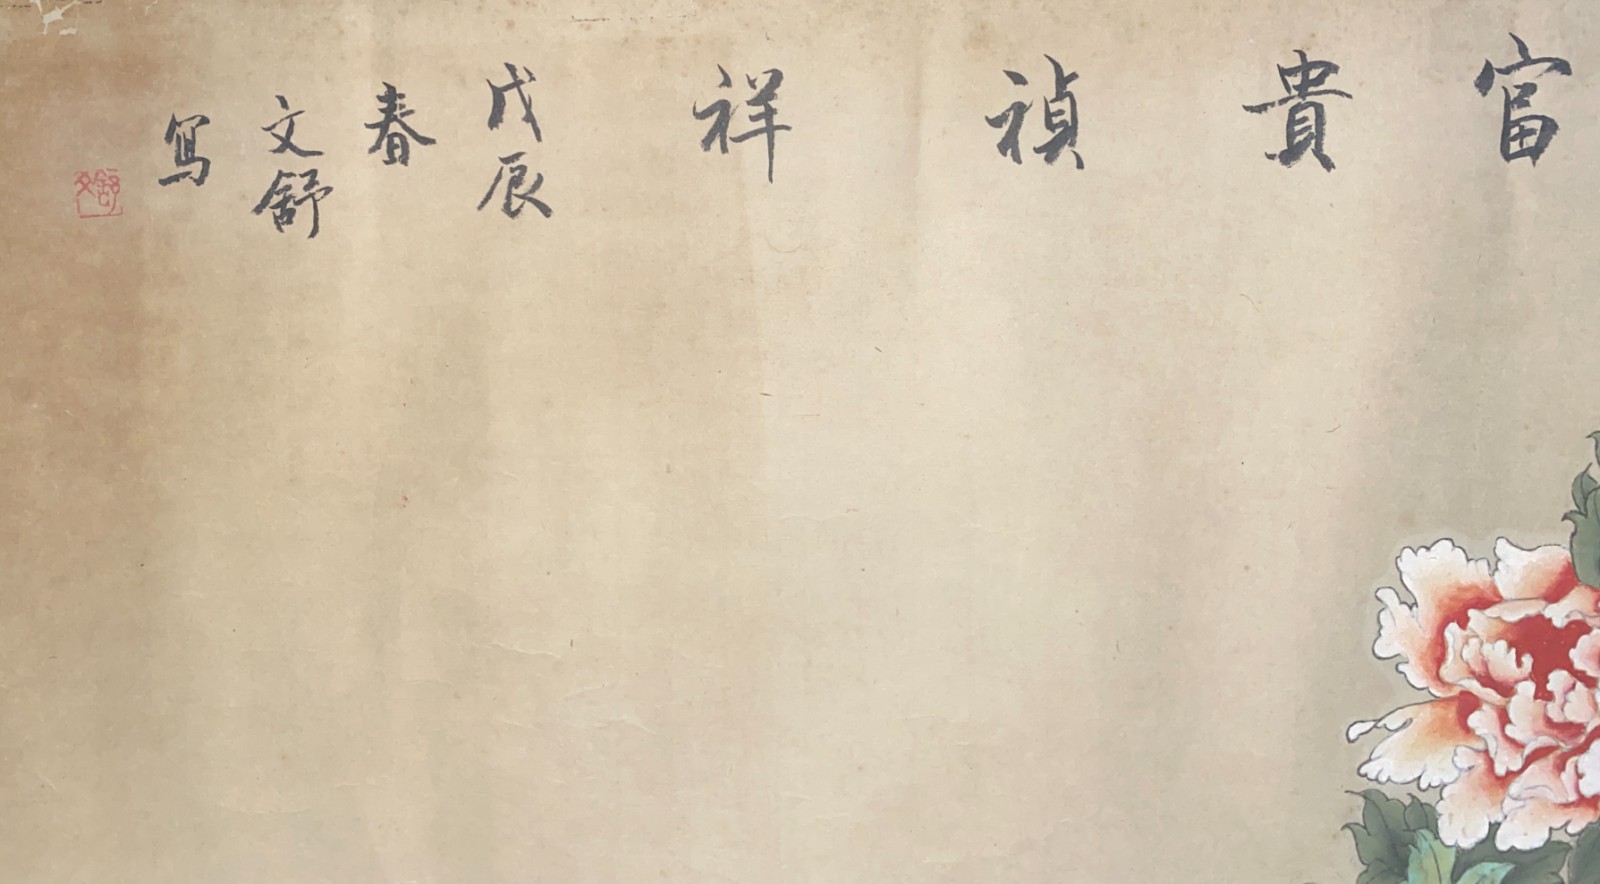 富貴禎祥
戊辰
春
文舒
寫
文舒